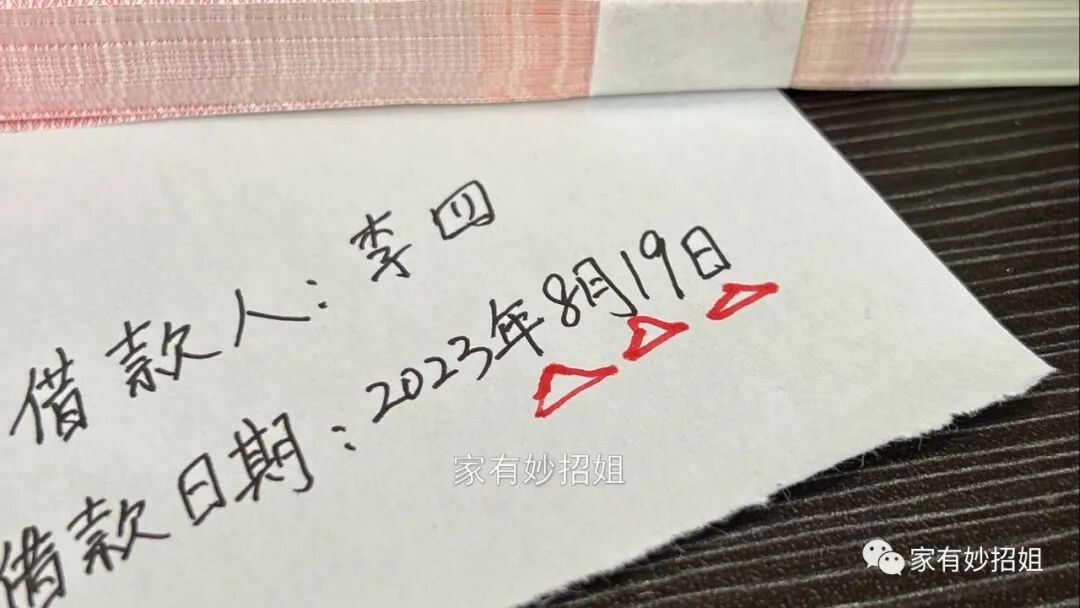 借款人：李四
借款日期：2023年8月19日
家有妙招姐
家有妙招姐